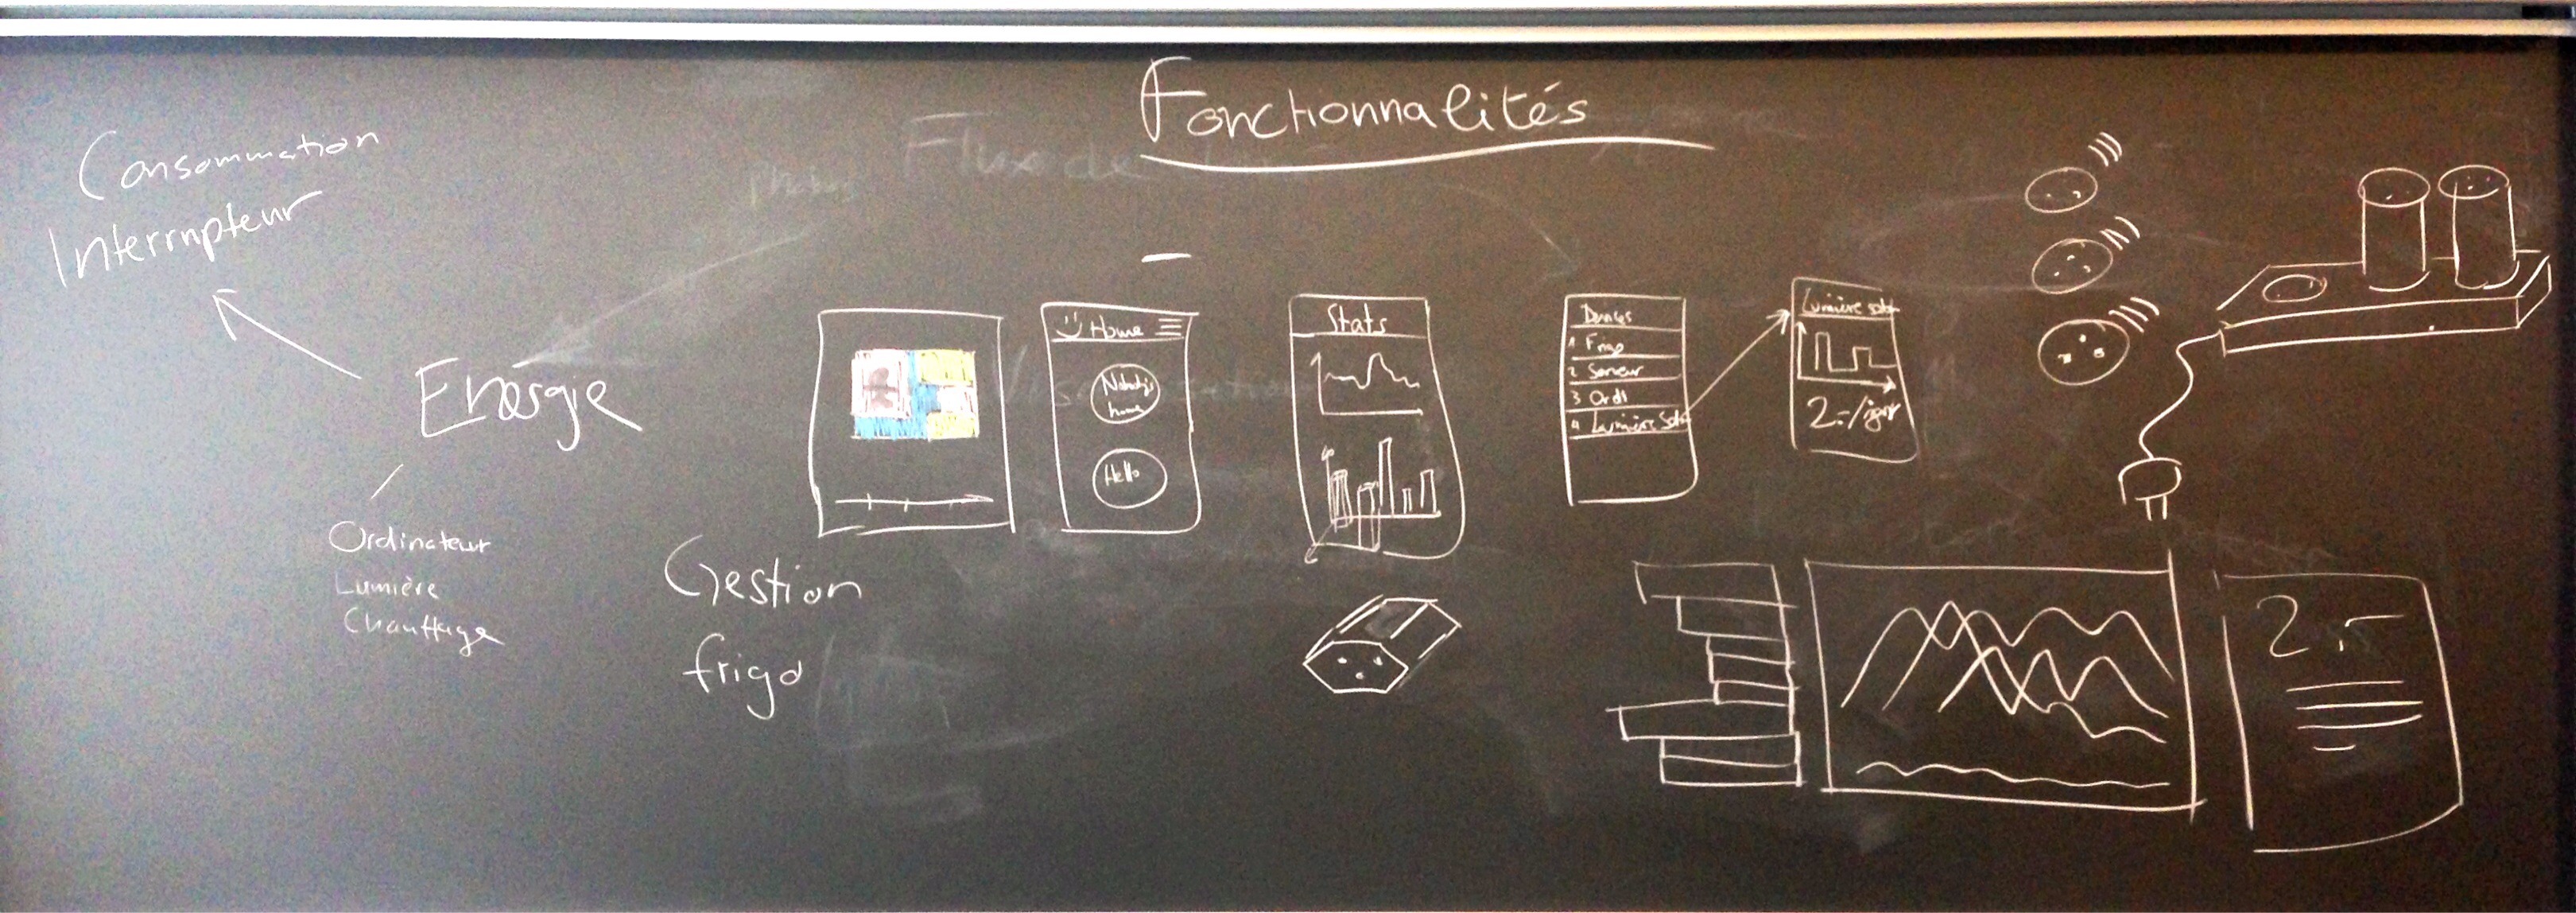 Fonctionnalités
Consommation
Interrupteur
Energie
Ordinateur
Lumière
Chauffage
Gestion
frigo
Flux de
Home
Nobody's
home
Hello
Stats
1 Frigo
2 Serveur
3 Ordi
4 Lumière Salon
Lumière salon
2.-/jour
2.-